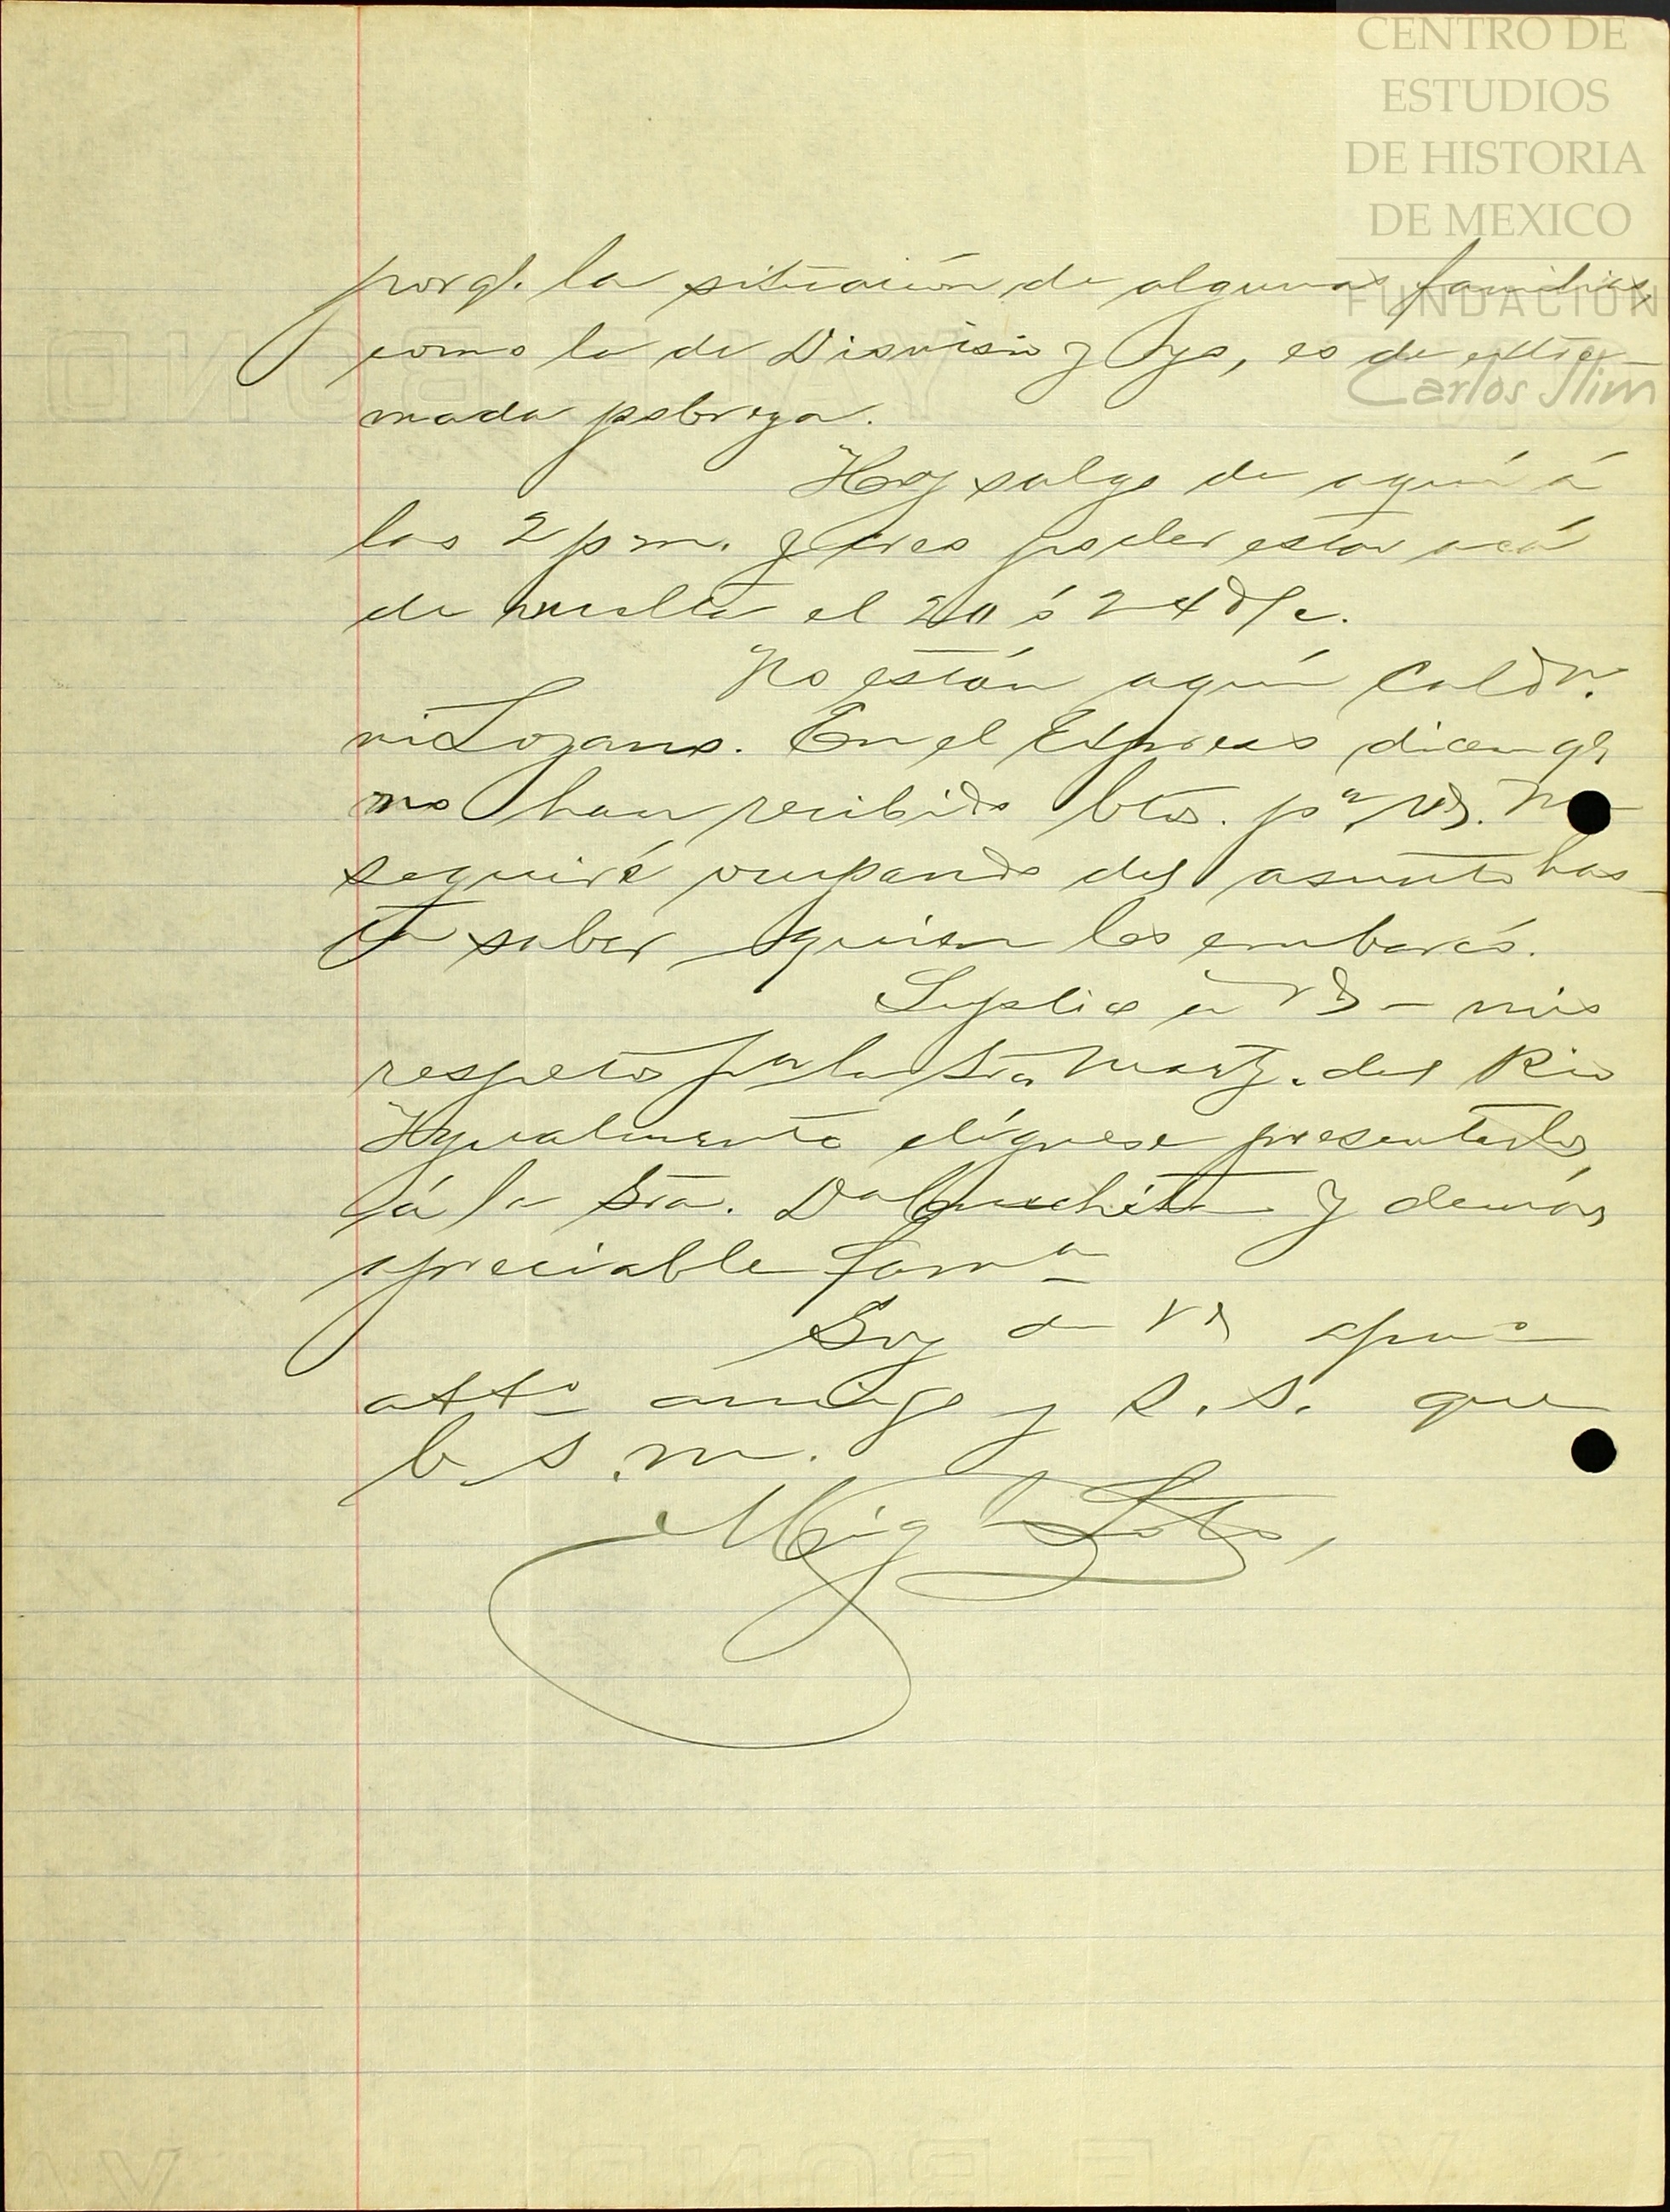 CENTRO DE
ESTUDIOS
DE HISTORIA
DE MEXICO
FUNDACIÓN
Carlos Slim
porq. la situación de algunas familias,
como la de Dionisio y, es de extre-
mada pobreza.
Hoy salgo de aquí á
las 2 p m. y creo poder estar acá
de vuelta el 20 ó 24 d/c.
No están aquí Cald n.
ni Lozano. En el Express dicen q
no han recibido btos. pa Vd.
seguiré ocupando del asunto has-
ta saber quien los embarcó.
Suplico á Vd - mis
respetos pa la Sra Martz. del Rio
Ygualmente dígnese presentarlos
á la Sra. Da y demás
apreciable Fama
Soy de Vd afmo
atto amigo y S. S. que
b. s. m.
Mig Soto
YALE BOND
YALE BOND